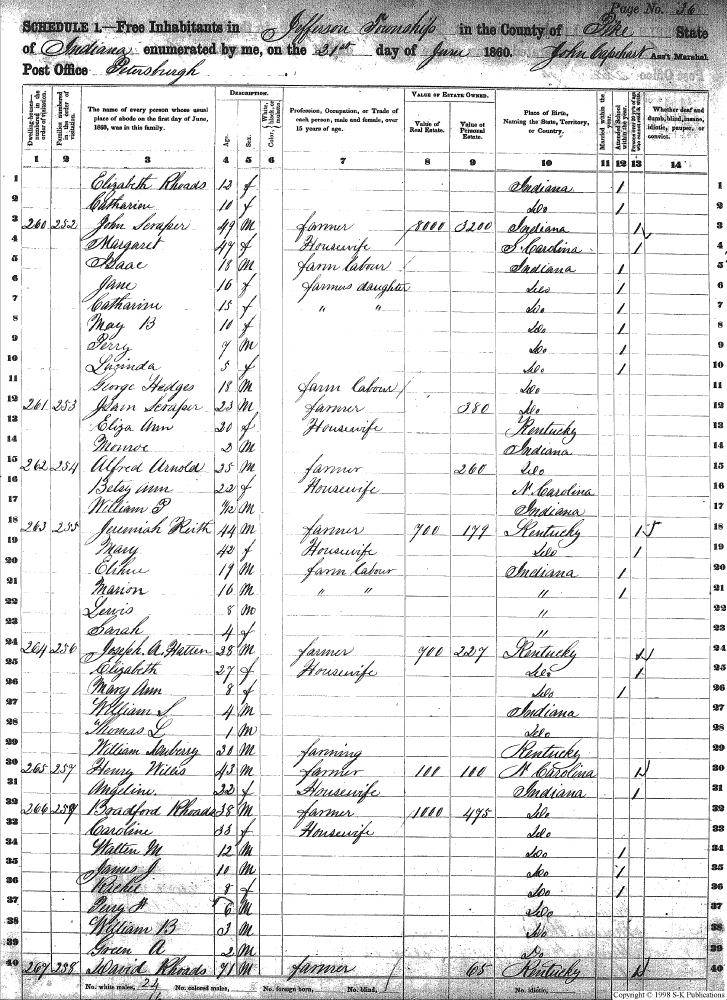 Page No. 26
SCHEDULE 1.—Free Inhabitants in Jefferson Township in the County of Pike State
of Indiana enumerated by me, on the 21st day of June 1860. John Capehart Ass't Marshal.
Post Office Petersburgh
Dwelling-houses—numbered in the order of visitation.
Families numbered in the order of visitation.
The name of every person whose usual place of abode on the first day of June, 1860, was in this family.
DESCRIPTION.
Age.
Sex.
Color, { White, black, or mulatto.
Profession, Occupation, or Trade of each person, male and female, over 15 years of age.
VALUE OF ESTATE OWNED.
Value of Real Estate.
Value of Personal Estate.
Place of Birth, Naming the State, Territory, or Country.
Married within the year.
Attended School within the year.
Persons over 20 y'rs of age who cannot read & write.
Whether deaf and dumb, blind, insane, idiotic, pauper, or convict.
1 2 3 4 5 6 7 8 9 10 11 12 13 14
1 Elizabeth Rhoads 12 f Indiana 1 1
2 Catharine 10 f Do 1 2
3 260 252 John Scraper 49 M farmer 8000 3200 Indiana 1 3
4 Margaret 47 f Housewife S. Carolina 1 4
5 Isaac 18 M farm labour Indiana 1 5
6 Jane 16 f farmers daughter Do 1 6
7 Catharine 15 f " " Do 1 7
8 May B 10 f Do 1 8
9 Perry 7 M Do 1 9
10 Luzinda 5 f Do 1 10
11 George Hedges 18 M farm labour Do 11
12 261 253 Scraper 23 M farmer 380 Do 12
13 Eliza Ann 20 f Housewife Kentucky 13
14 Monroe 2 M Indiana 14
15 262 254 Alfred Arnold 25 M farmer 260 Do 15
16 Betsy Ann 22 f Housewife N. Carolina 16
17 William P M Indiana 17
18 263 255 Jeremiah Keith 44 M farmer 700 179 Kentucky 1 18
19 Mary 42 f Housewife Do 1 19
20 19 M farm labour Indiana 1 20
21 Marion 16 M " " " 1 21
22 Lewis 8 M " 22
23 Sarah 4 f " 23
24 264 256 Joseph A. Hatten 38 M farmer 700 227 Kentucky 1 24
25 Elizabeth 27 f Housewife Do 1 25
26 Mary Ann 8 f Do 1 26
27 William S 4 M Indiana 27
28 Thomas L 1 M Do 28
29 William 20 M farming Kentucky 29
30 265 257 Henry Willis 43 M farmer 100 100 N. Carolina 1 30
31 Angeline 22 f Housewife Indiana 1 31
32 266 Bradford Rhoads 38 M farmer 1000 475 Do 32
33 Caroline 33 f Housewife Do 33
34 Walten M 12 M Do 1 34
35 James J 10 M Do 1 35
36 8 f Do 1 36
37 Perry H 6 M Do 37
38 William B 3 M Do 38
39 Green A 2 M Do 39
40 267 258 David Rhoads 71 M farmer 65 Kentucky 1 40
No. white males, 24 No. colored males, No. foreign born, No. blind, No. idiotic,
Copyright © 1998 S-K Publications